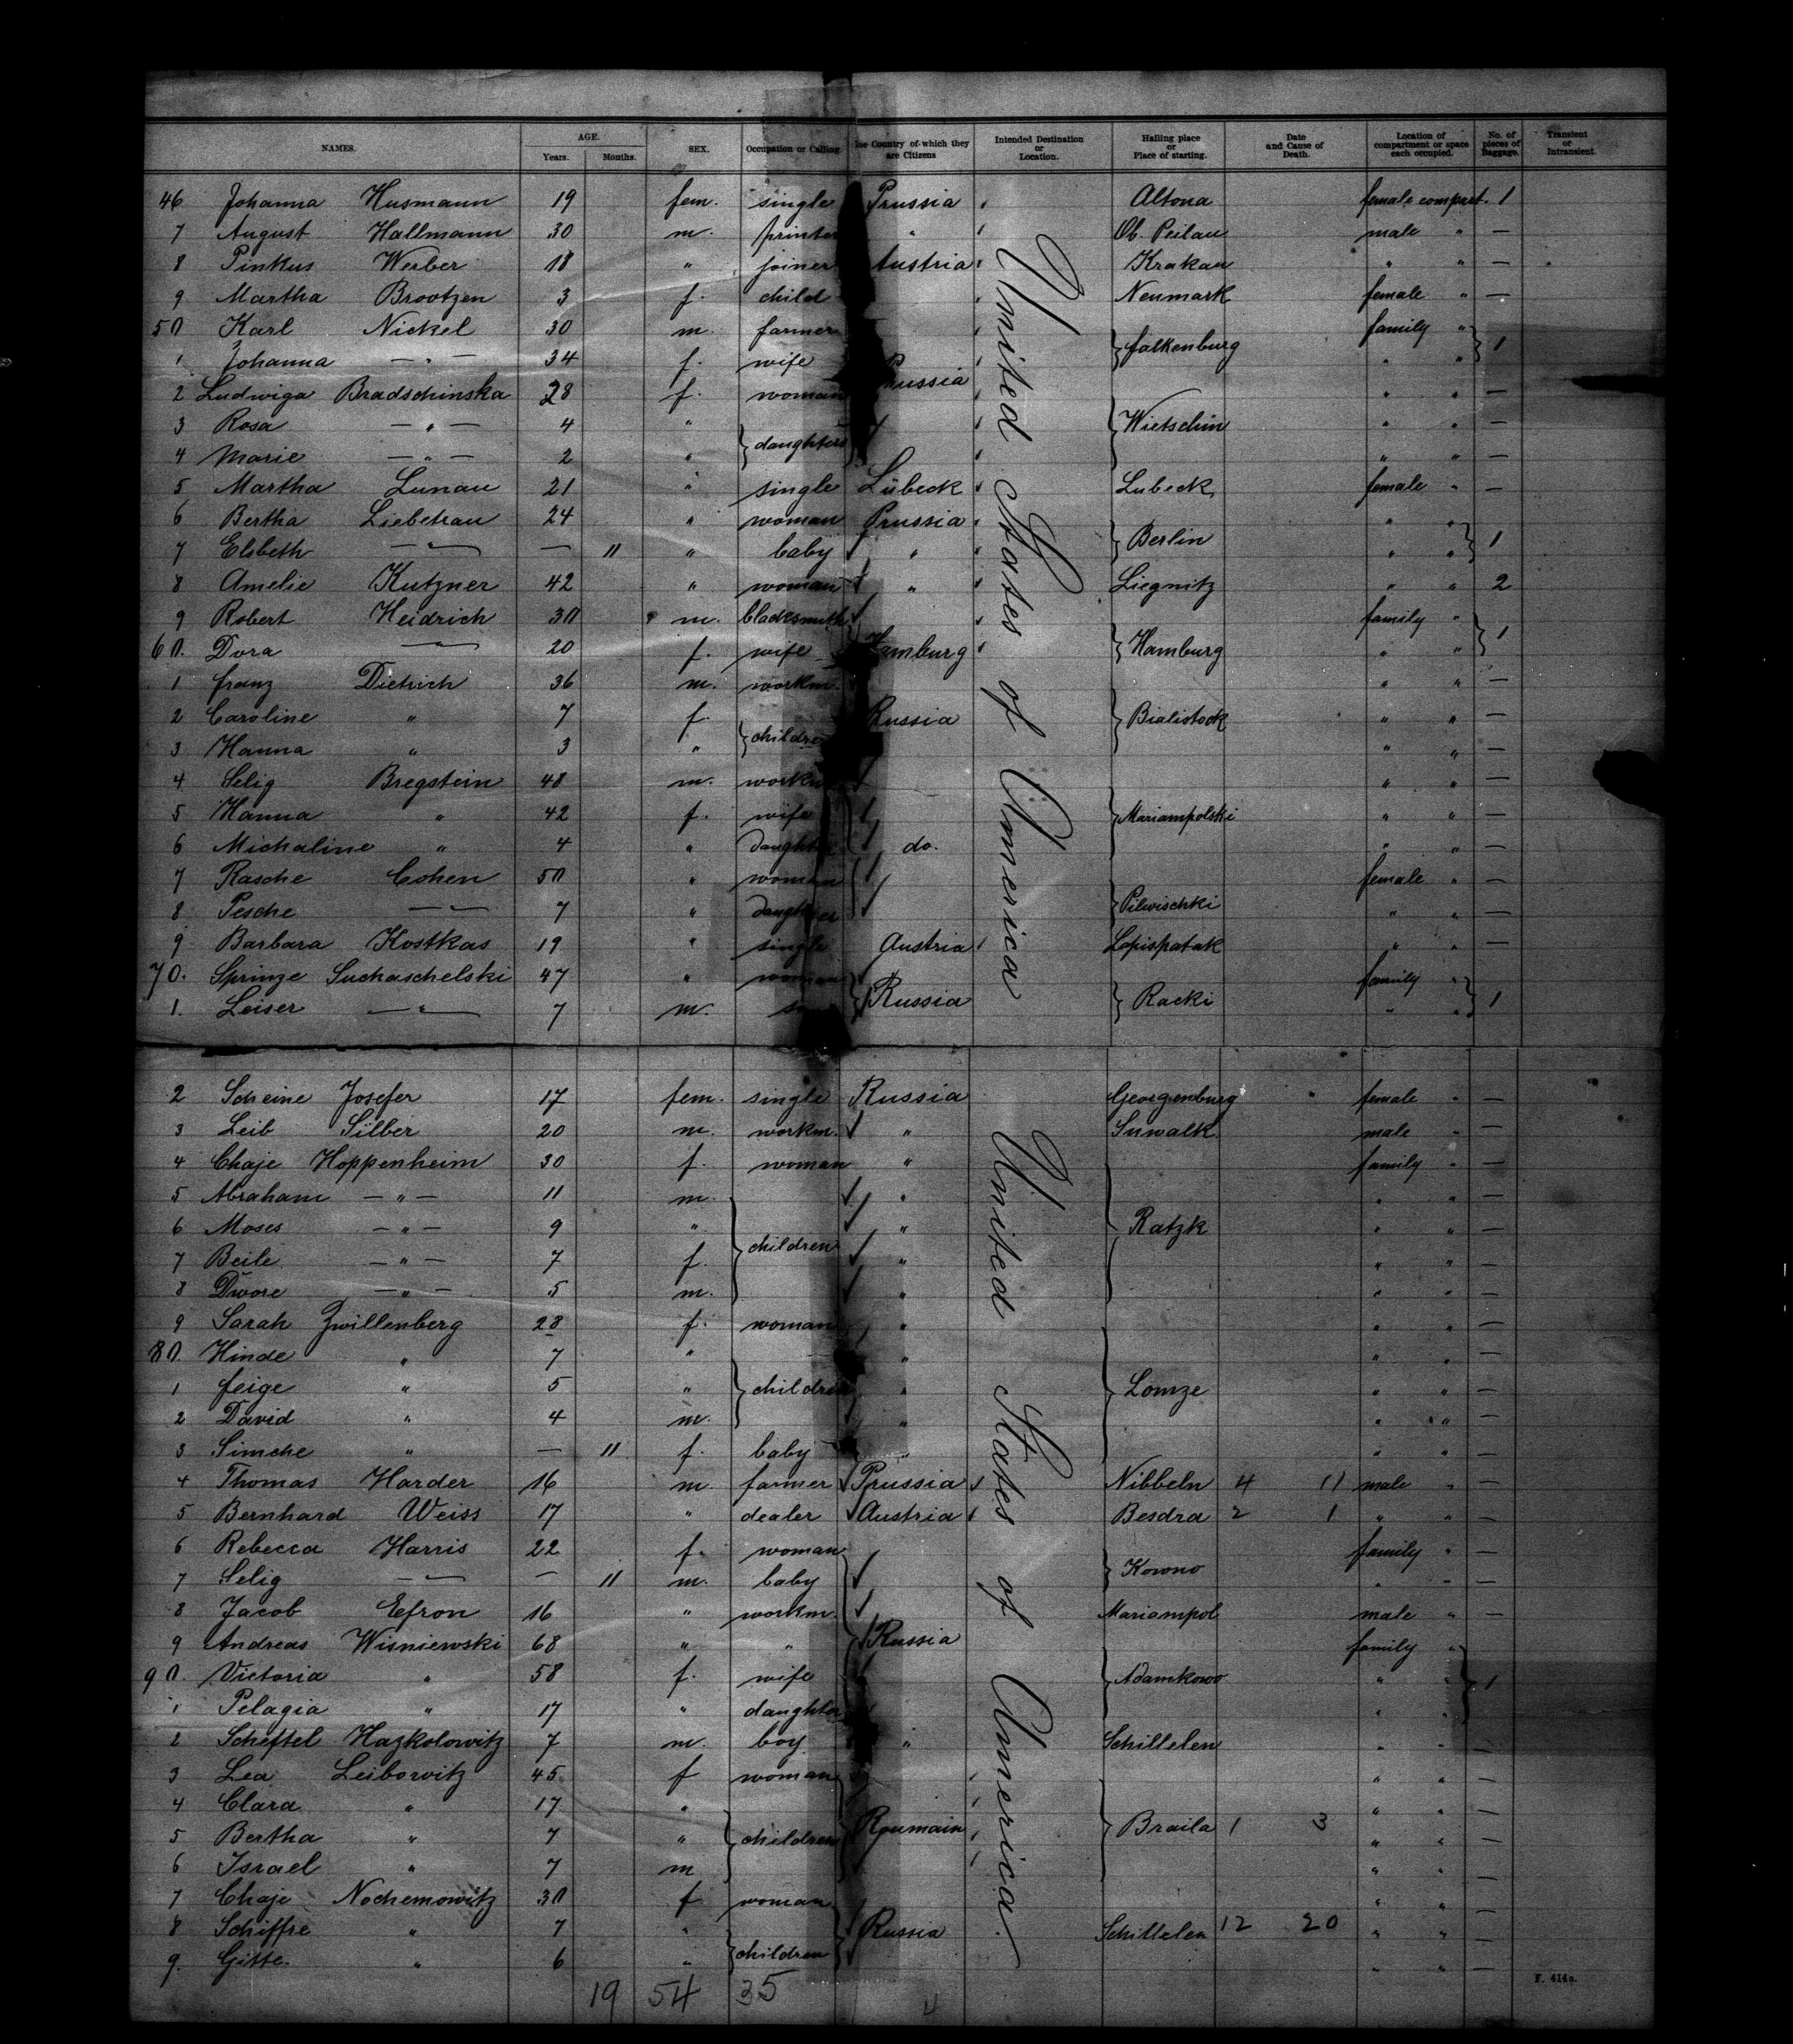 NAMES. AGE. Years. Months. SEX. Occupation or Calling. The Country of which they are Citizens Intended Destination or Location. Hailing place or Place of starting. Date and Cause of Death. Location of compartment or space each occupied. No. of pieces of Baggage. Transient or Intransient.
46 Johanna Husmann 19 fem. single Prussia Altona female compart. 1
7 August Hallmann 30 m. printer " Ob. Peilau male " —
8 Pinkus Werber 18 " joiner Austria Krakau " " —
9 Martha Brootzen 3 f. child Neumark female " —
50 Karl Nickel 30 m. farmer Falkenburg family " 1
1. Johanna — " — 34 f. wife " "
2 Ludwiga Bradschinska 28 f. woman Prussia " " —
3 Rosa — " — 4 " daughters Wietschin " " —
4 Marie — " — 2 " " " —
5 Martha Lunau 21 " single Lübeck Lubeck female " —
6 Bertha Liebetrau 24 " woman Prussia Berlin " " 1
7 Elsbeth — " — — 11 " baby " " "
8 Amelie Kutzner 42 " woman " Liegnitz " " 2
9 Robert Heidrich 30 m. blacksmith Hamburg Hamburg family " 1
60. Dora — " — 20 f. wife " "
1 Franz Dietrich 36 m. workm. " " —
2 Caroline " 7 f. children Russia Bialistock " " —
3 Hanna " 3 " " " —
4 Selig Bregstein 48 m. workm " " —
5 Hanna " 42 f. wife Mariampolski " " —
6 Michaline " 4 " daughter do. " " —
7 Rasche Cohen 50 " woman female " —
8 Pesche — " — 7 " daughter Pilwischki " " —
9 Barbara Kostkas 19 " single Austria Lapispatak " " —
70. Sprinze Suchaschelski 47 " woman Russia Racki family " 1
1. Leiser — " — 7 m. " "
United States of America
2 Scheine Josefer 17 fem. single Russia Georgenburg female " —
3 Leib Silber 20 m. workm. " Suwalk. male " —
4 Chaje Hoppenheim 30 f. woman " family " —
5 Abraham — " — 11 m. " " " —
6 Moses — " — 9 " children " Ratzk " " —
7 Beile — " — 7 f. " " " —
8 Dwore — " — 5 m. " " " —
9 Sarah Zwillenberg 28 f. woman " " " —
80. Hinde " 7 " " " " —
1 Feige " 5 " children " Lomze " " —
2 David " 4 m. " " " —
3 Simche " — 11 f. baby " " " —
4 Thomas Harder 16 m. farmer Prussia Nibbeln 4 11 male " —
5 Bernhard Weiss 17 " dealer Austria Besdra 2 1 " " —
6 Rebecca Harris 22 f. woman Kowno family " —
7 Selig — " — — 11 m. baby " " —
8 Jacob Efron 16 " workm. Mariampol male " —
9 Andreas Wisniewski 68 " " Russia family "
90. Victoria " 58 f. wife Adamkowo " " 1
1 Pelagia " 17 " daughter " "
2 Scheftel Hazkolowitz 7 m. boy " Schillelen " " —
3 Lea Leibowitz 45 f woman " " —
4 Clara " 17 " " " —
5 Bertha " 7 " children Roumain Braila 1 3 " " —
6 Israel " 7 m " " —
7 Chaje Nochemowitz 30 f woman " " —
8 Schiffre " 7 " Russia Schillelen 12 20 " " —
9. Gitte " 6 " children " " —
United States of America.
19 54 35 4
F. 414a.